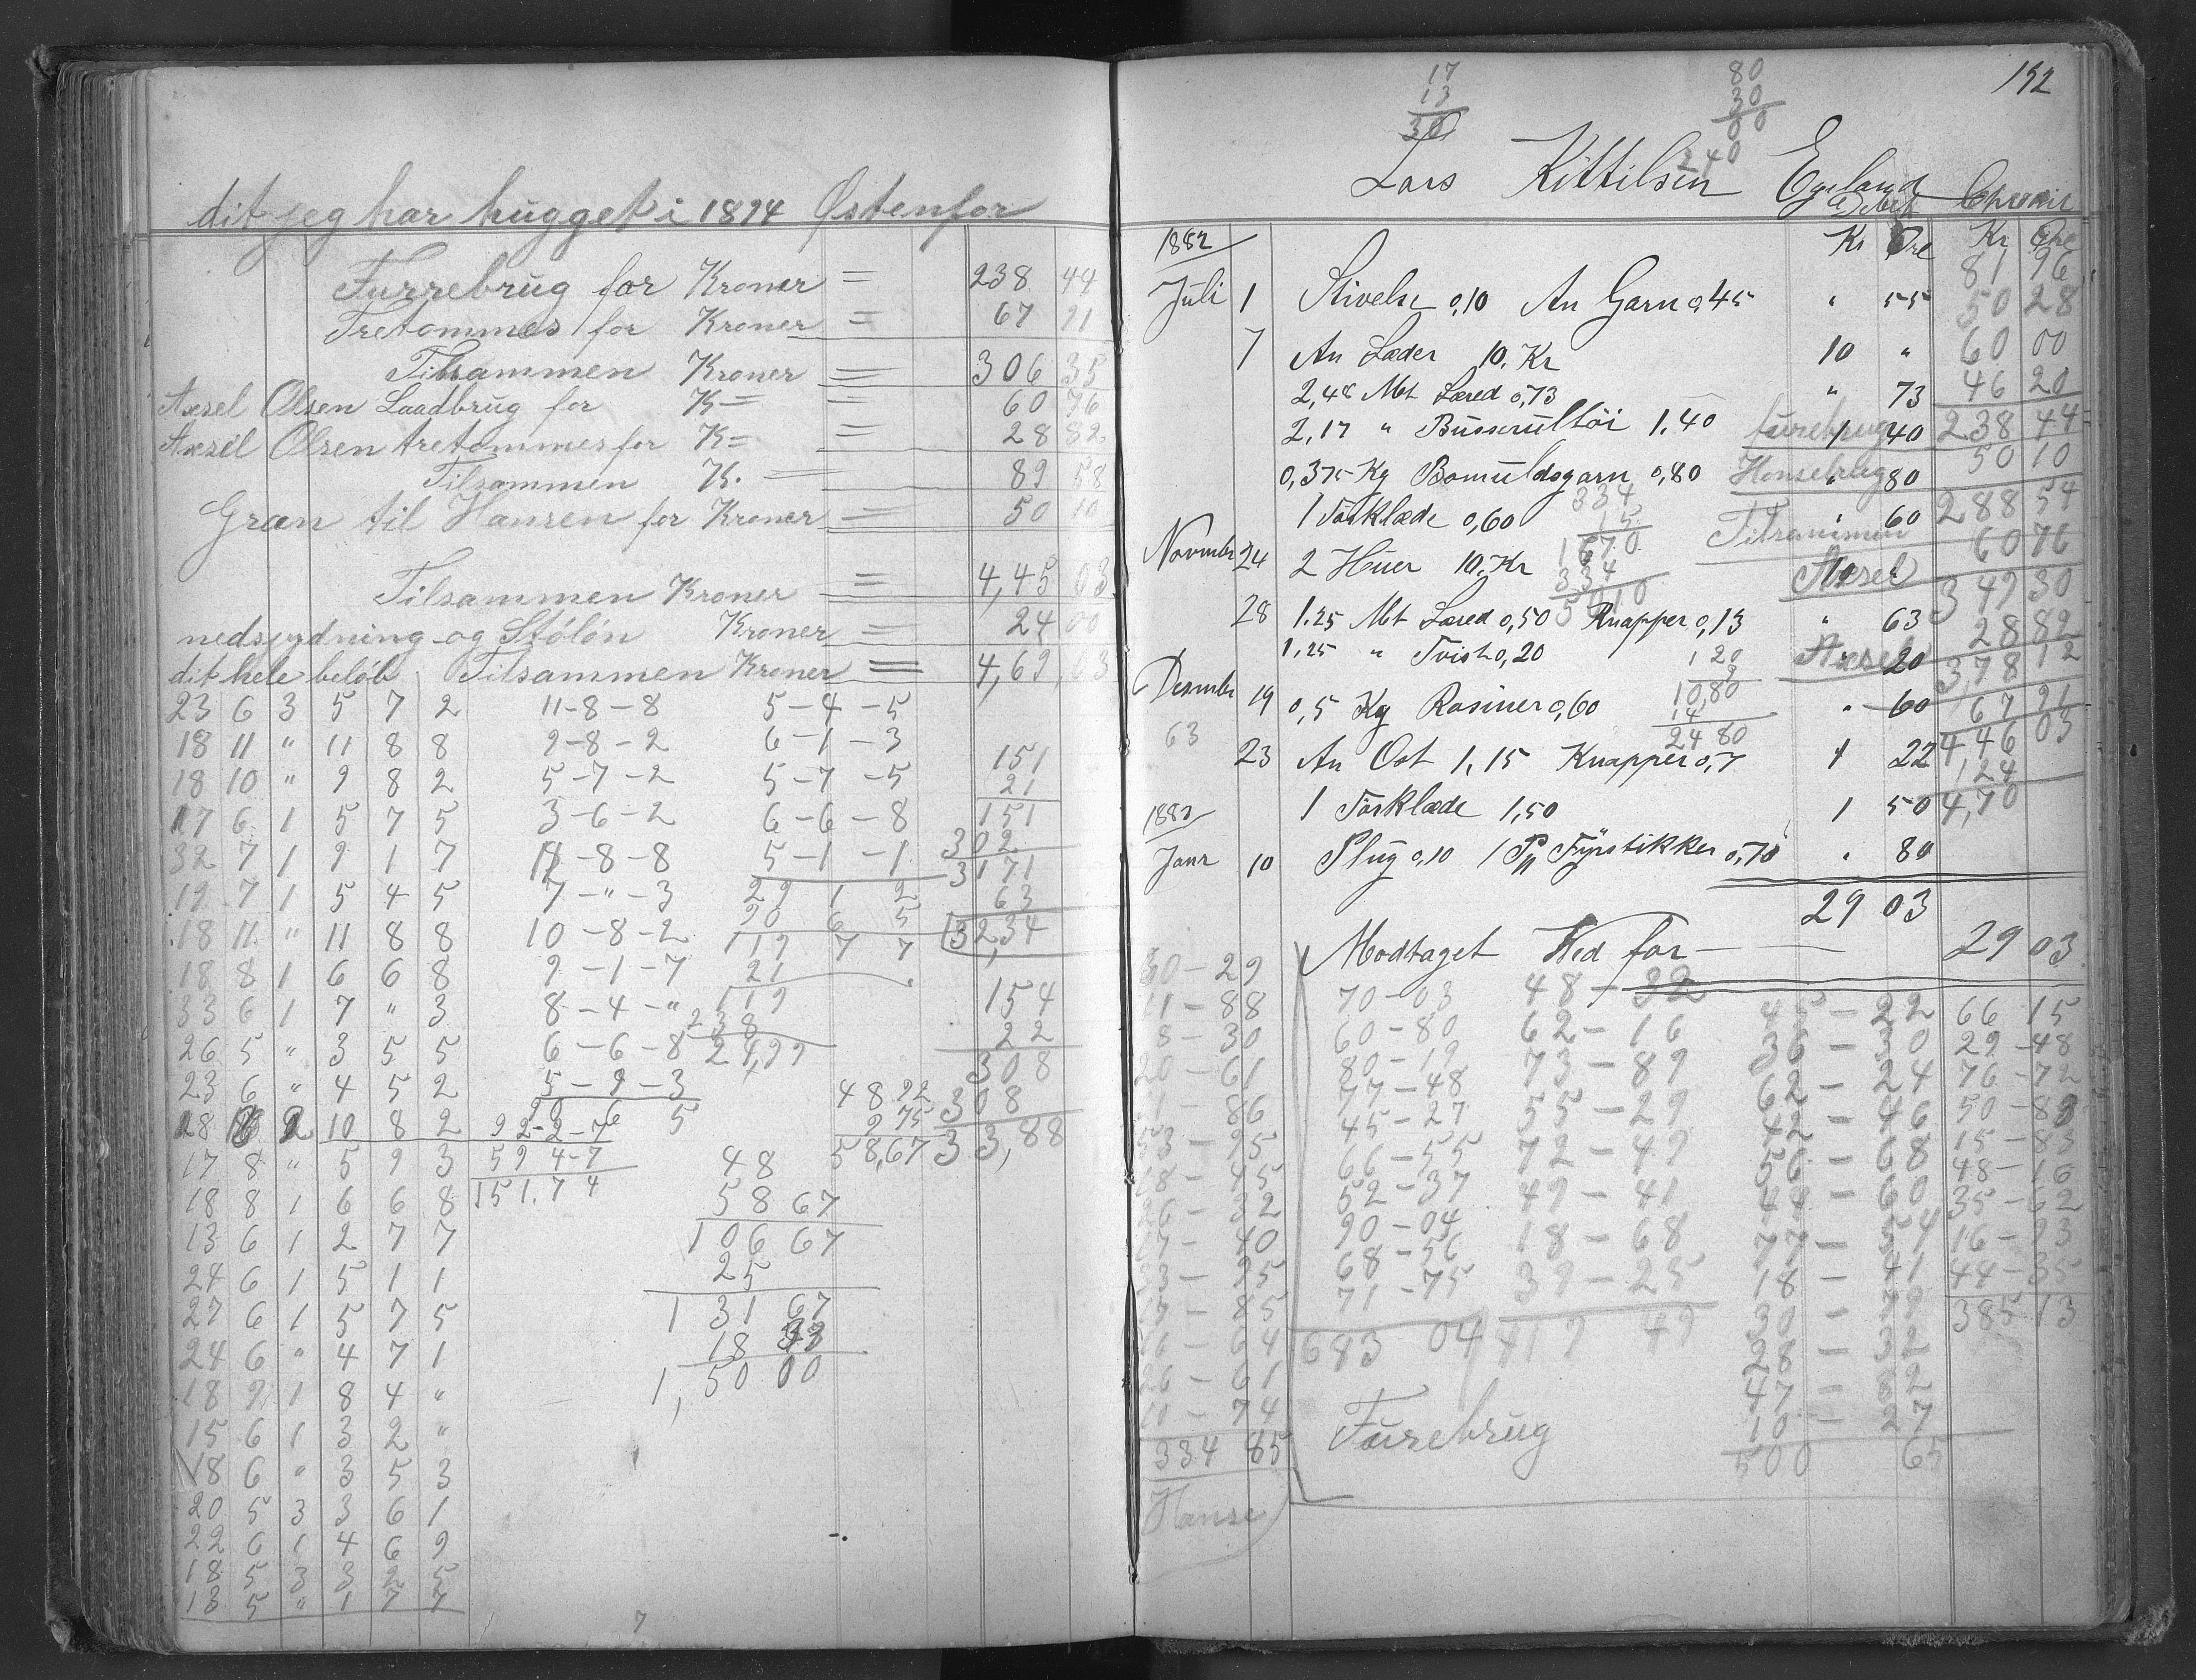 dit jeg har hugget i 1894 Østenfor
Furrebrug for Kroner = 238 44
Tretommes for Kroner = 67 91
Tilsammen Kroner = 306 35
Axsel Olsen Laadbrug for K = = 60 76
Axsel Olsen tretommes for K = = 28 82
Tilsammen K. = 89 58
Græn til Hansen for Kroner = 50 10
Tilsammen Kroner = 4,45 03
nedsydning og Stóløn Kroner = 24 00
dit hele beløb Tilsammen Kroner = 4,69,63
23 6 3 5 7 2 11-8-8 5-4-5
18 11 " 11 8 8 9-8-2 6-1-3
18 10 " 9 8 2 5-7-2 5-7-5 151
21
17 6 1 5 7 5 3-6-2 6-6-8 151
302
32 7 1 9 1 7 11-8-8 5-1-1 3171
19 7 1 5 4 5 7-"-3 29 1 2 63
18 11 " 11 8 8 10-8-2 90 6 5 3234
119 7 7
18 8 1 6 6 8 9-1-7 21
33 6 1 7 " 3 8-4-" 119 154
238 22
26 5 " 3 5 5 6-6-8 24,99 308
23 6 " 4 5 2 5-9-3 48 92 308
90 6 5 9 75
18 8 2 10 8 2 92-2-7 58,67 33,88
17 8 " 5 9 3 59 4-7 48
18 8 1 6 6 8 151.7 4 58 67
13 6 1 2 7 7 106 67
24 6 1 5 1 1 25
27 6 1 5 7 5 131 67
24 6 " 4 7 1 18 33
18 9 1 8 4 " 1,50 00
15 6 1 3 2 "
18 6 " 3 5 3
20 5 3 3 6 1
22 6 1 4 6 9
18 5 3 3 2 5
13 5 " 1 7 7
7
192
17
13
30
80
30
00
240
Lars Kittilsen Egeland
Debet
1882 Kr Øre Kr Øre
81 96
Juli 1 Stivelse 0,10 An Garn 0,45 " 55 50 28
7 An Læder 10. Kr 10 " 60 00
2,48 Mt Læred 0,73 " 73 46 20
2,17 " Busserultöi 1.40 furebrug 1 40 238 44
0,375 Kg Bomuldsgarn 0,80 Hansebrug " 80 50 10
1 Törklæde 0,60 Tilsammen " 60 288 54
334
15
1670
334
5010
Novmber 24 2 Huer 10. Kr Axsel 60 76
349 30
28 1.25 Mt Læred 0,50 Knapper 0,13 " 63 28 82
1,25 " Tvist 0,20 Axsel " 20 3,78 12
120
9
1080
14
2480
Desmber 19 0,5 Kg Rosiner 0,60 " 60 67 91
63
23 An Ost 1,15 Knapper 0,7 1 22 4,46 03
24
1883 1 Törklæde 1,50 1 50 4,70
Janr 10 Plug 0,10 1 Pk Fyrstikker 0,70 " 80
29 03
Modtaget Ved for 29 03
30-29 70-03 48-32 45-22 66 15
11-88 60-80 62-16 36-30 29-48
8-30 80-19 73-89 62-24 76-72
20-61 77-48 55-29 42-46 50-83
45-27 72-49 56-68 15-83
66-55 49-41 44-60 48-10
18-45 52-37 18-68 77-54 35-62
26-32 90-04 39-25 18-41 16-93
17-40 68-56 44-35
71-75 385 13
683 04 419 49
28-32
47-82
10-27
334 85 Furebrug 500 65
Hanse